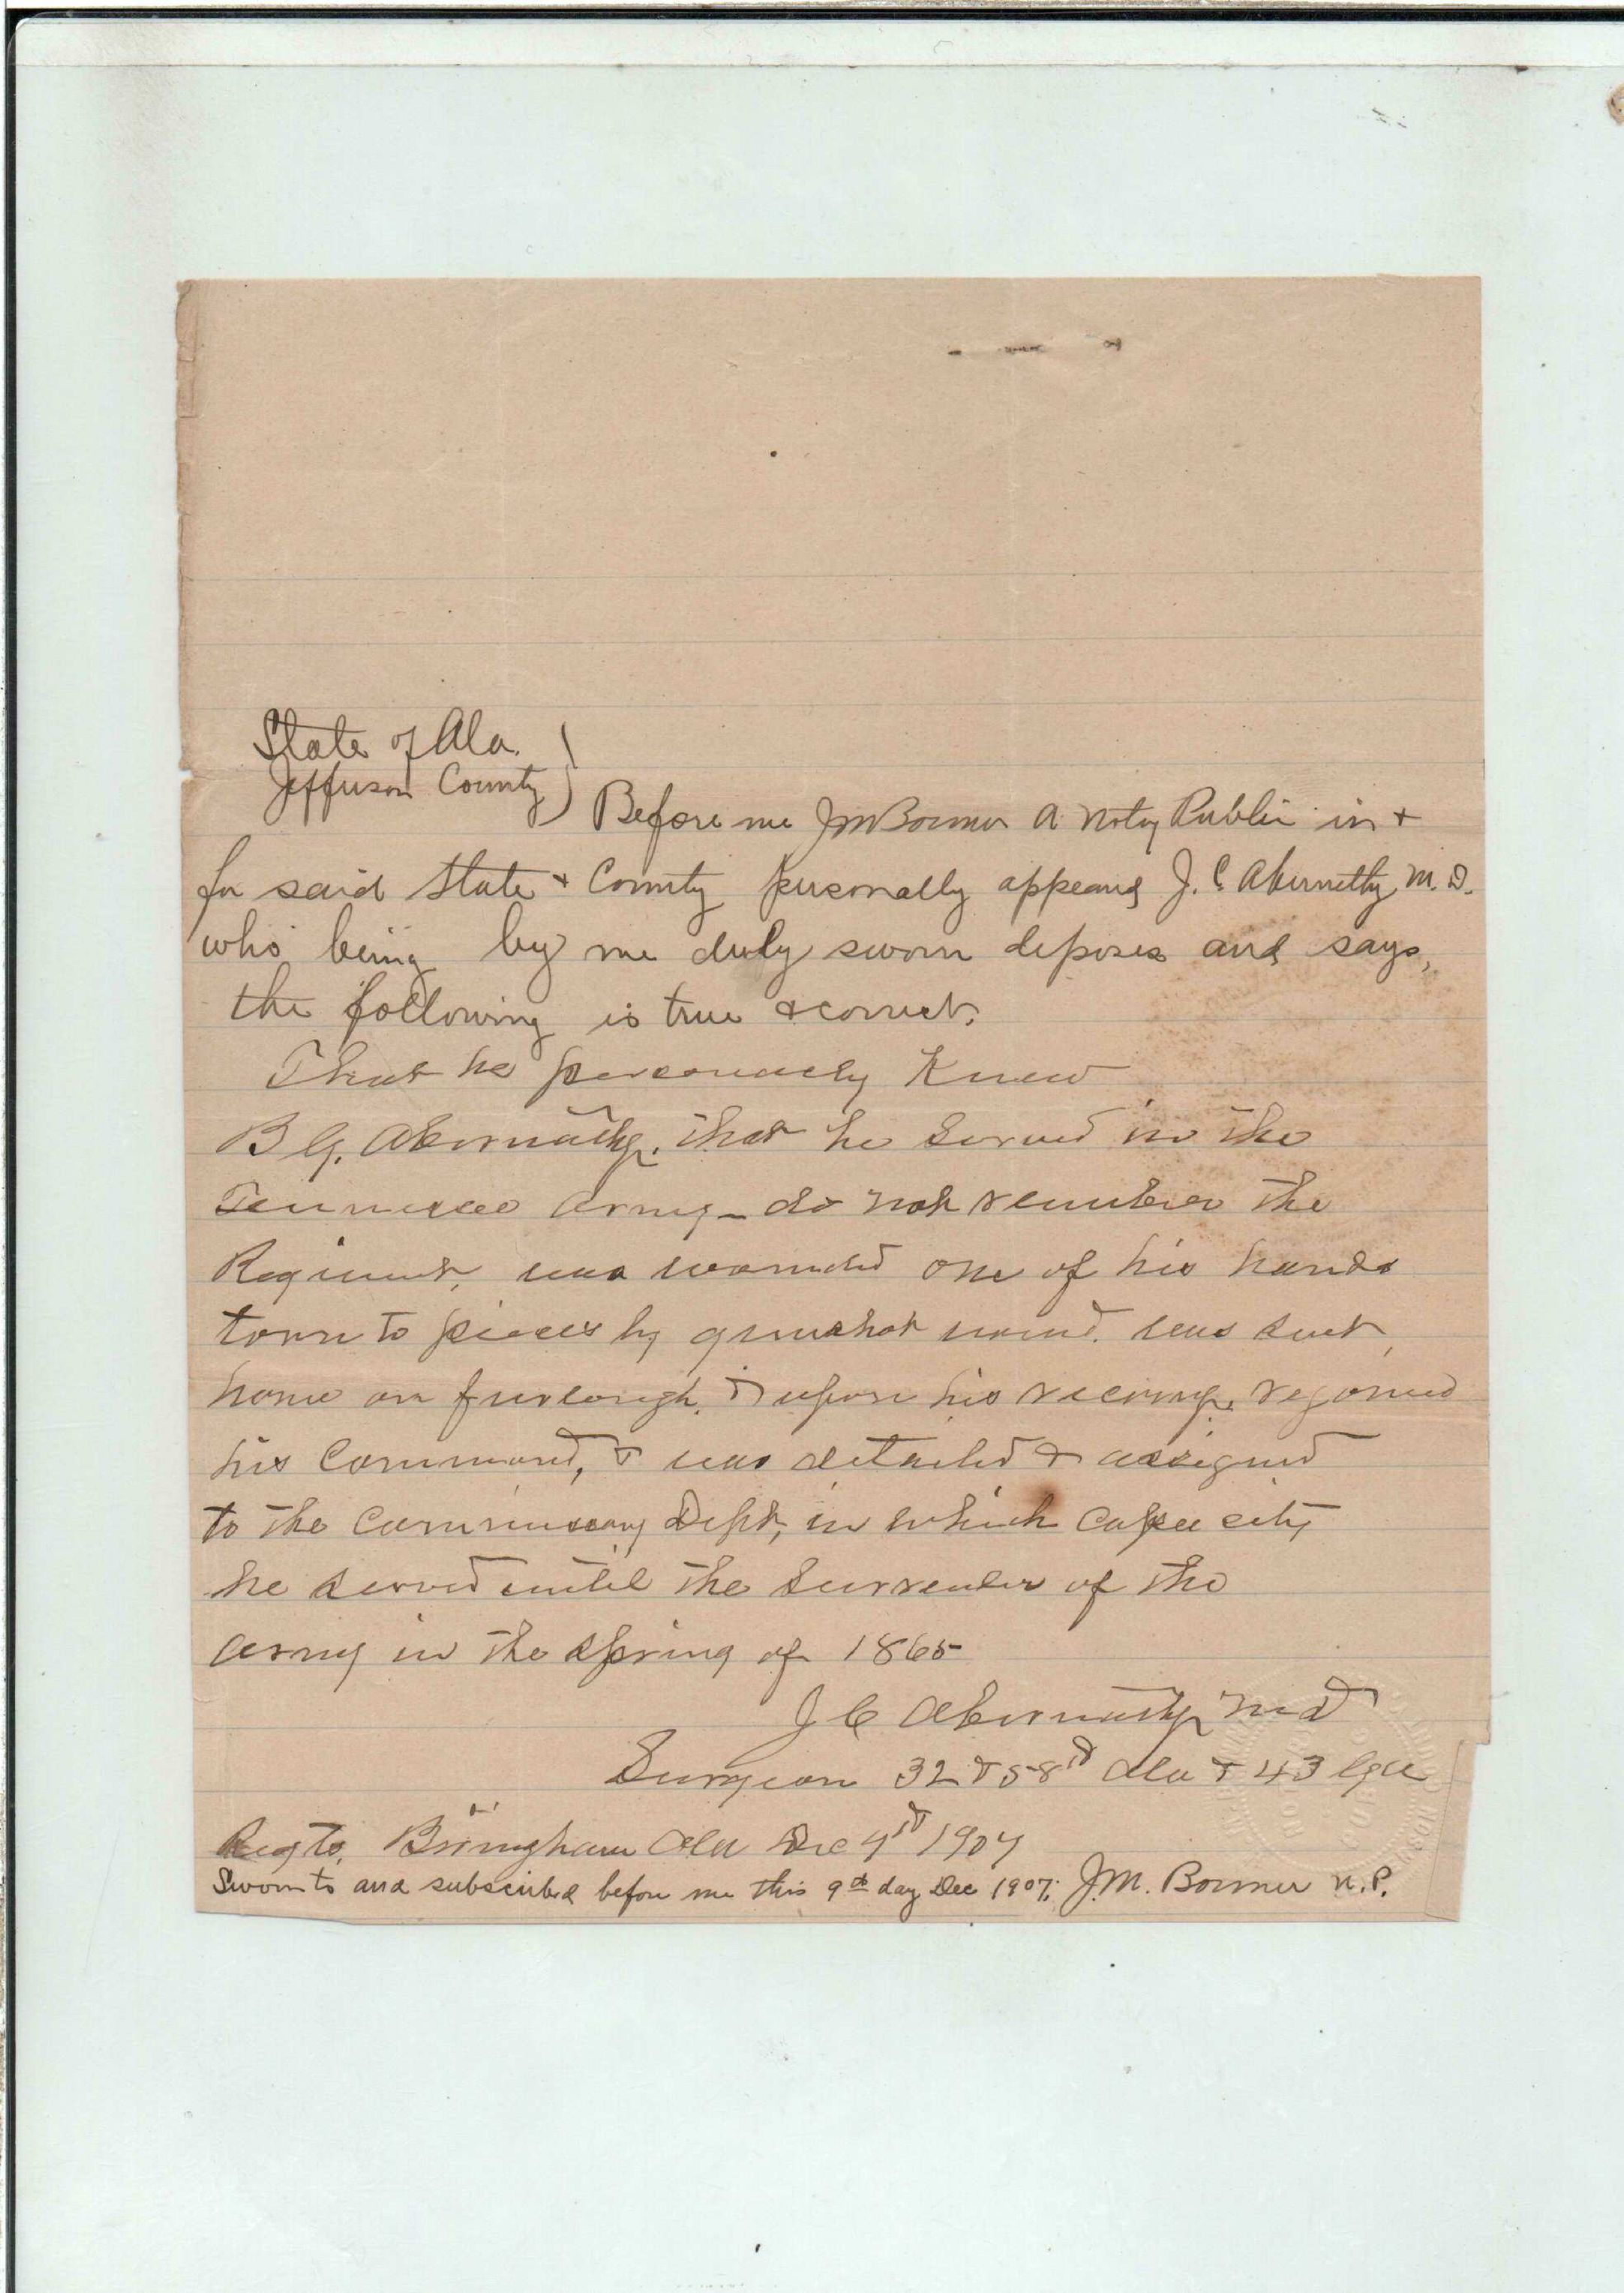 State of Ala.
Jefferson County
Before me J M Bonner a Noty Public in +
for said State + County personally appears J. C. Abernethy M. D.
who being by me duly sworn deposes and says,
the following is true & correct.
That he personally Knew
B G. Abernathy. that he served in the
Tennessee Army - do not remember the
Regiment, was wounded one of his hands
torn to pieces by gunshot wound. was sent
home on furlough. & upon his recovery. rejoined
his Command, & was detailed & assigned
to the Commissary Dept, in which capacity
he served until the Surrender of the
Army in the Spring of 1865
J C Abernathy M D
Surgeon 32 & 58th Ala & 43 Ga
Regts. Birmingham Ala Dec 9th 1907
Sworn to and subscribed before me this 9th day Dec 1907. J. M. Bonner N. P.